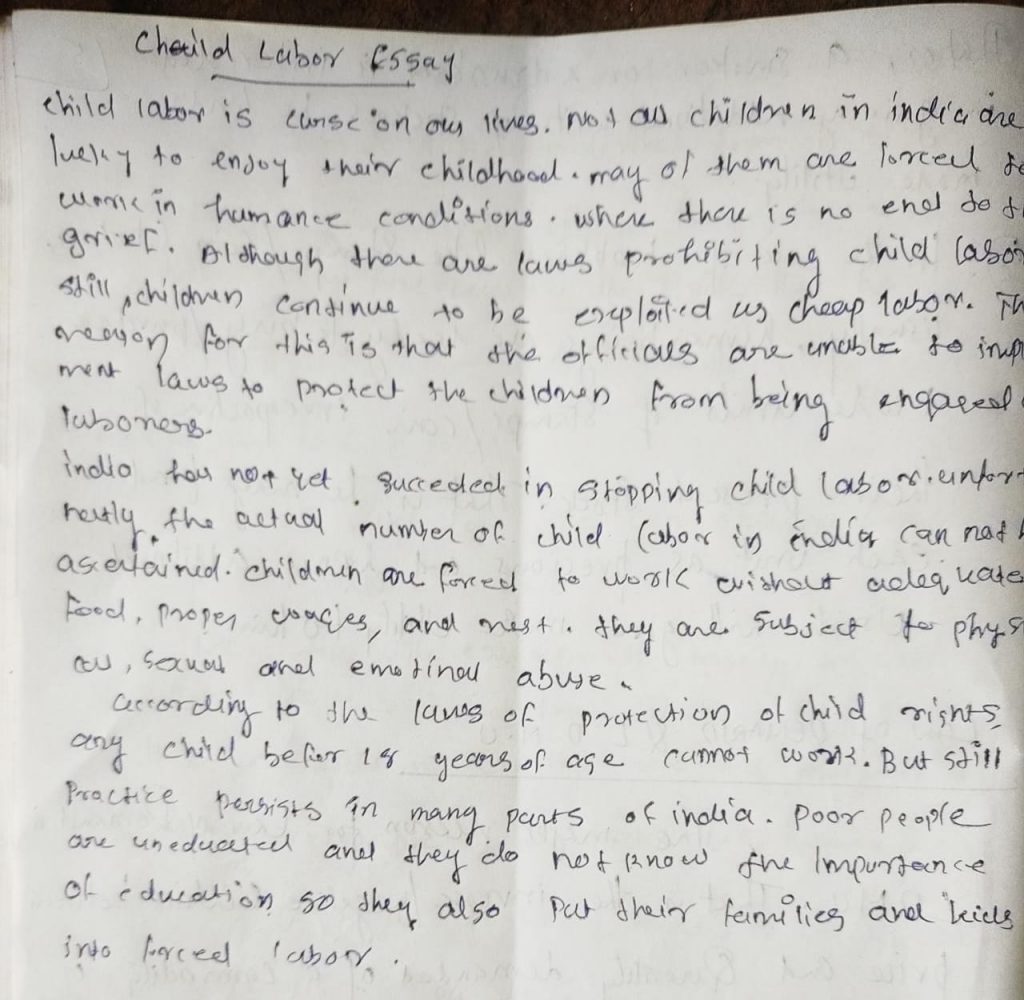 Chaild Labor Essay
child labor is curse on our lives. not all children in india are
lucky to enjoy their childhood. may of them are forced to
work in humance conditions. where there is no end to
grief. Although there are laws prohibiting child labor
still, children continue to be exploited as cheap labor. Th
reason for this is that the officials are unable to imp
ment laws to protect the children from being engaged
laboners.
india has not yet succeded in stopping child labor. unfor
natly, the actual number of child labor in india can not
ascertained. children are forced to work without adequate
food, proper wages, and rest. they are subject to phys
al, sexual and emotinal abuse.
according to the laws of protection of child rights
any child befor 18 years of age cannot work. But still
Practice persists in many parts of india. poor people
are uneducated and they do not know the Importance
of education so they also put their families and kids
into forced labor.